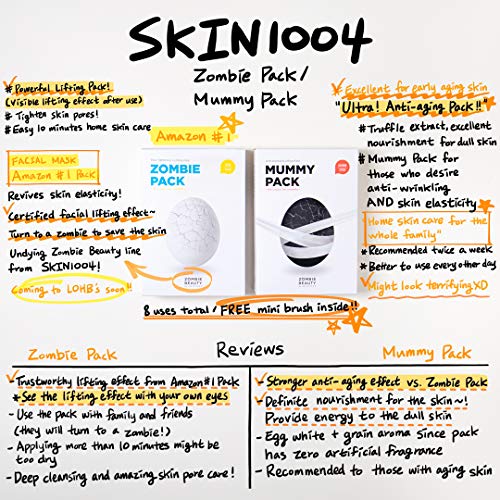 SKIN1004
Zombie Pack/
Mummy Pack
# Powerful Lifting Pack!
(Visible lifting effect after use)
# Tighten skin pores!
# Easy 10 minutes home skin care
Amazon #1
FACIAL MASK
Amazon #1 Pack
Revives skin elasticity!
Certified facial lifting effect~
Turn to a zombie to save the skin
Undying Zombie Beauty line
from SKIN1004!
Coming to LOHB's soon!!
ZOMBIE
PACK
ZOMBIE
BEAUTY
MUMMY
PACK
ZOMBIE
BEAUTY
8 uses total / FREE mini brush inside!!
# Excellent for early aging skin
"Ultra! Anti-aging Pack!!"
# Truffle extract, excellent
nourishment for dull skin
# Mummy Pack for
those who desire
anti-wrinkling
AND skin elasticity
Home skin care for the
whole family"
* Recommended twice a week
* Better to use every other day
Might look terrifying XD
Reviews
Zombie Pack
- Trustworthy lifting effect from Amazon #1 Pack
* See the lifting effect with your own eyes
- Use the pack with family and friends
(they will turn to a zombie!)
- Applying more than 10 minutes might be
too dry
- Deep cleansing and amazing skin pore care!
Mummy Pack
- Stronger anti-aging effect vs. Zombie Pack
- Definite nourishment for the skin~!
Provide energy to the dull skin
- Egg white + grain aroma since pack
has zero artificial fragrance
- Recommended to those with aging skin